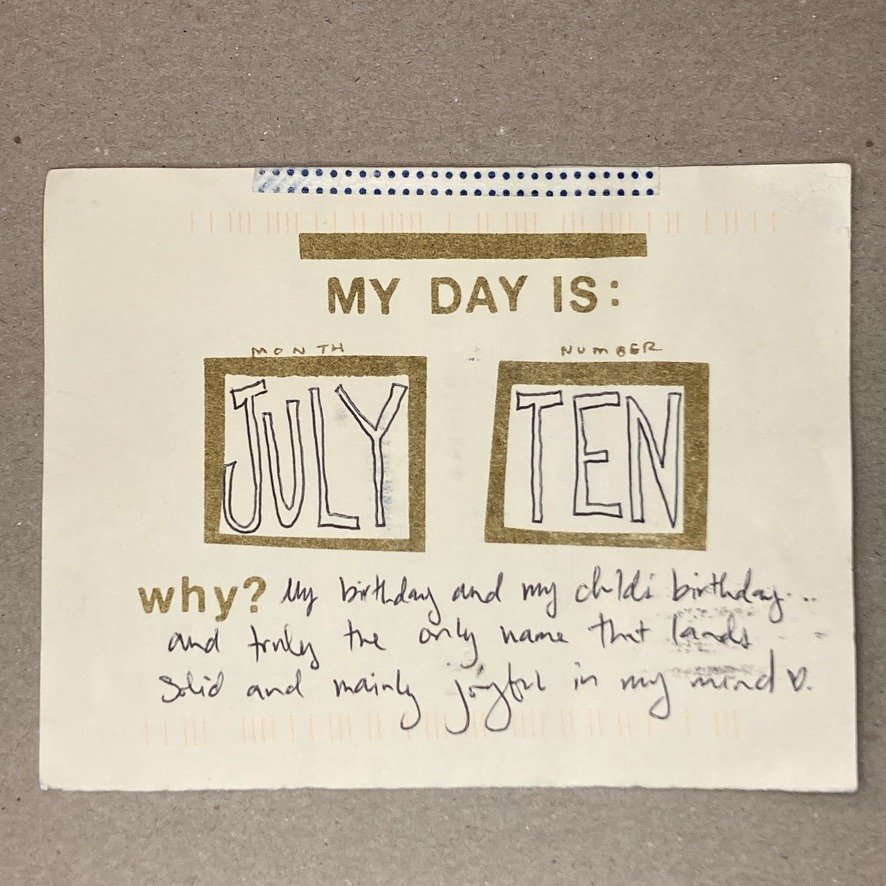 MY DAY IS:
MONTH NUMBER
JULY TEN
why? My birthday and my child's birthday...
and truly the only name that lands
solid and mainly joyful in my mind ♡.